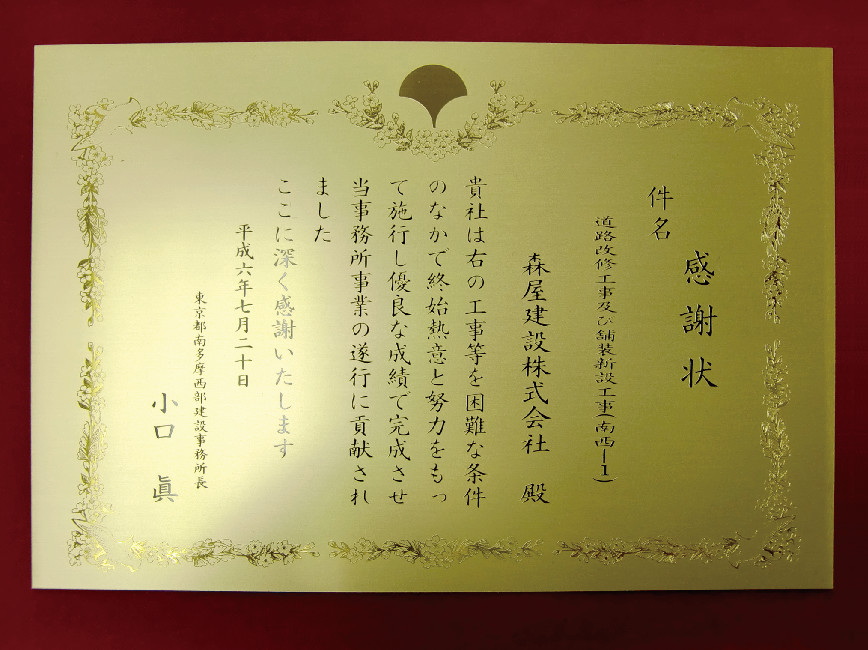 感謝状
件名
道路改修工事及び舗装新設工事(南西ー1)
森屋建設株式会社 殿
貴社は右の工事等を困難な条件
のなかで終始熱意と努力をもっ
て施行し優良な成績で完成させ
当事務所事業の遂行に貢献され
ました
ここに深く感謝いたします
平成六年七月二十日
東京都南多摩西部建設事務所長
小口 眞